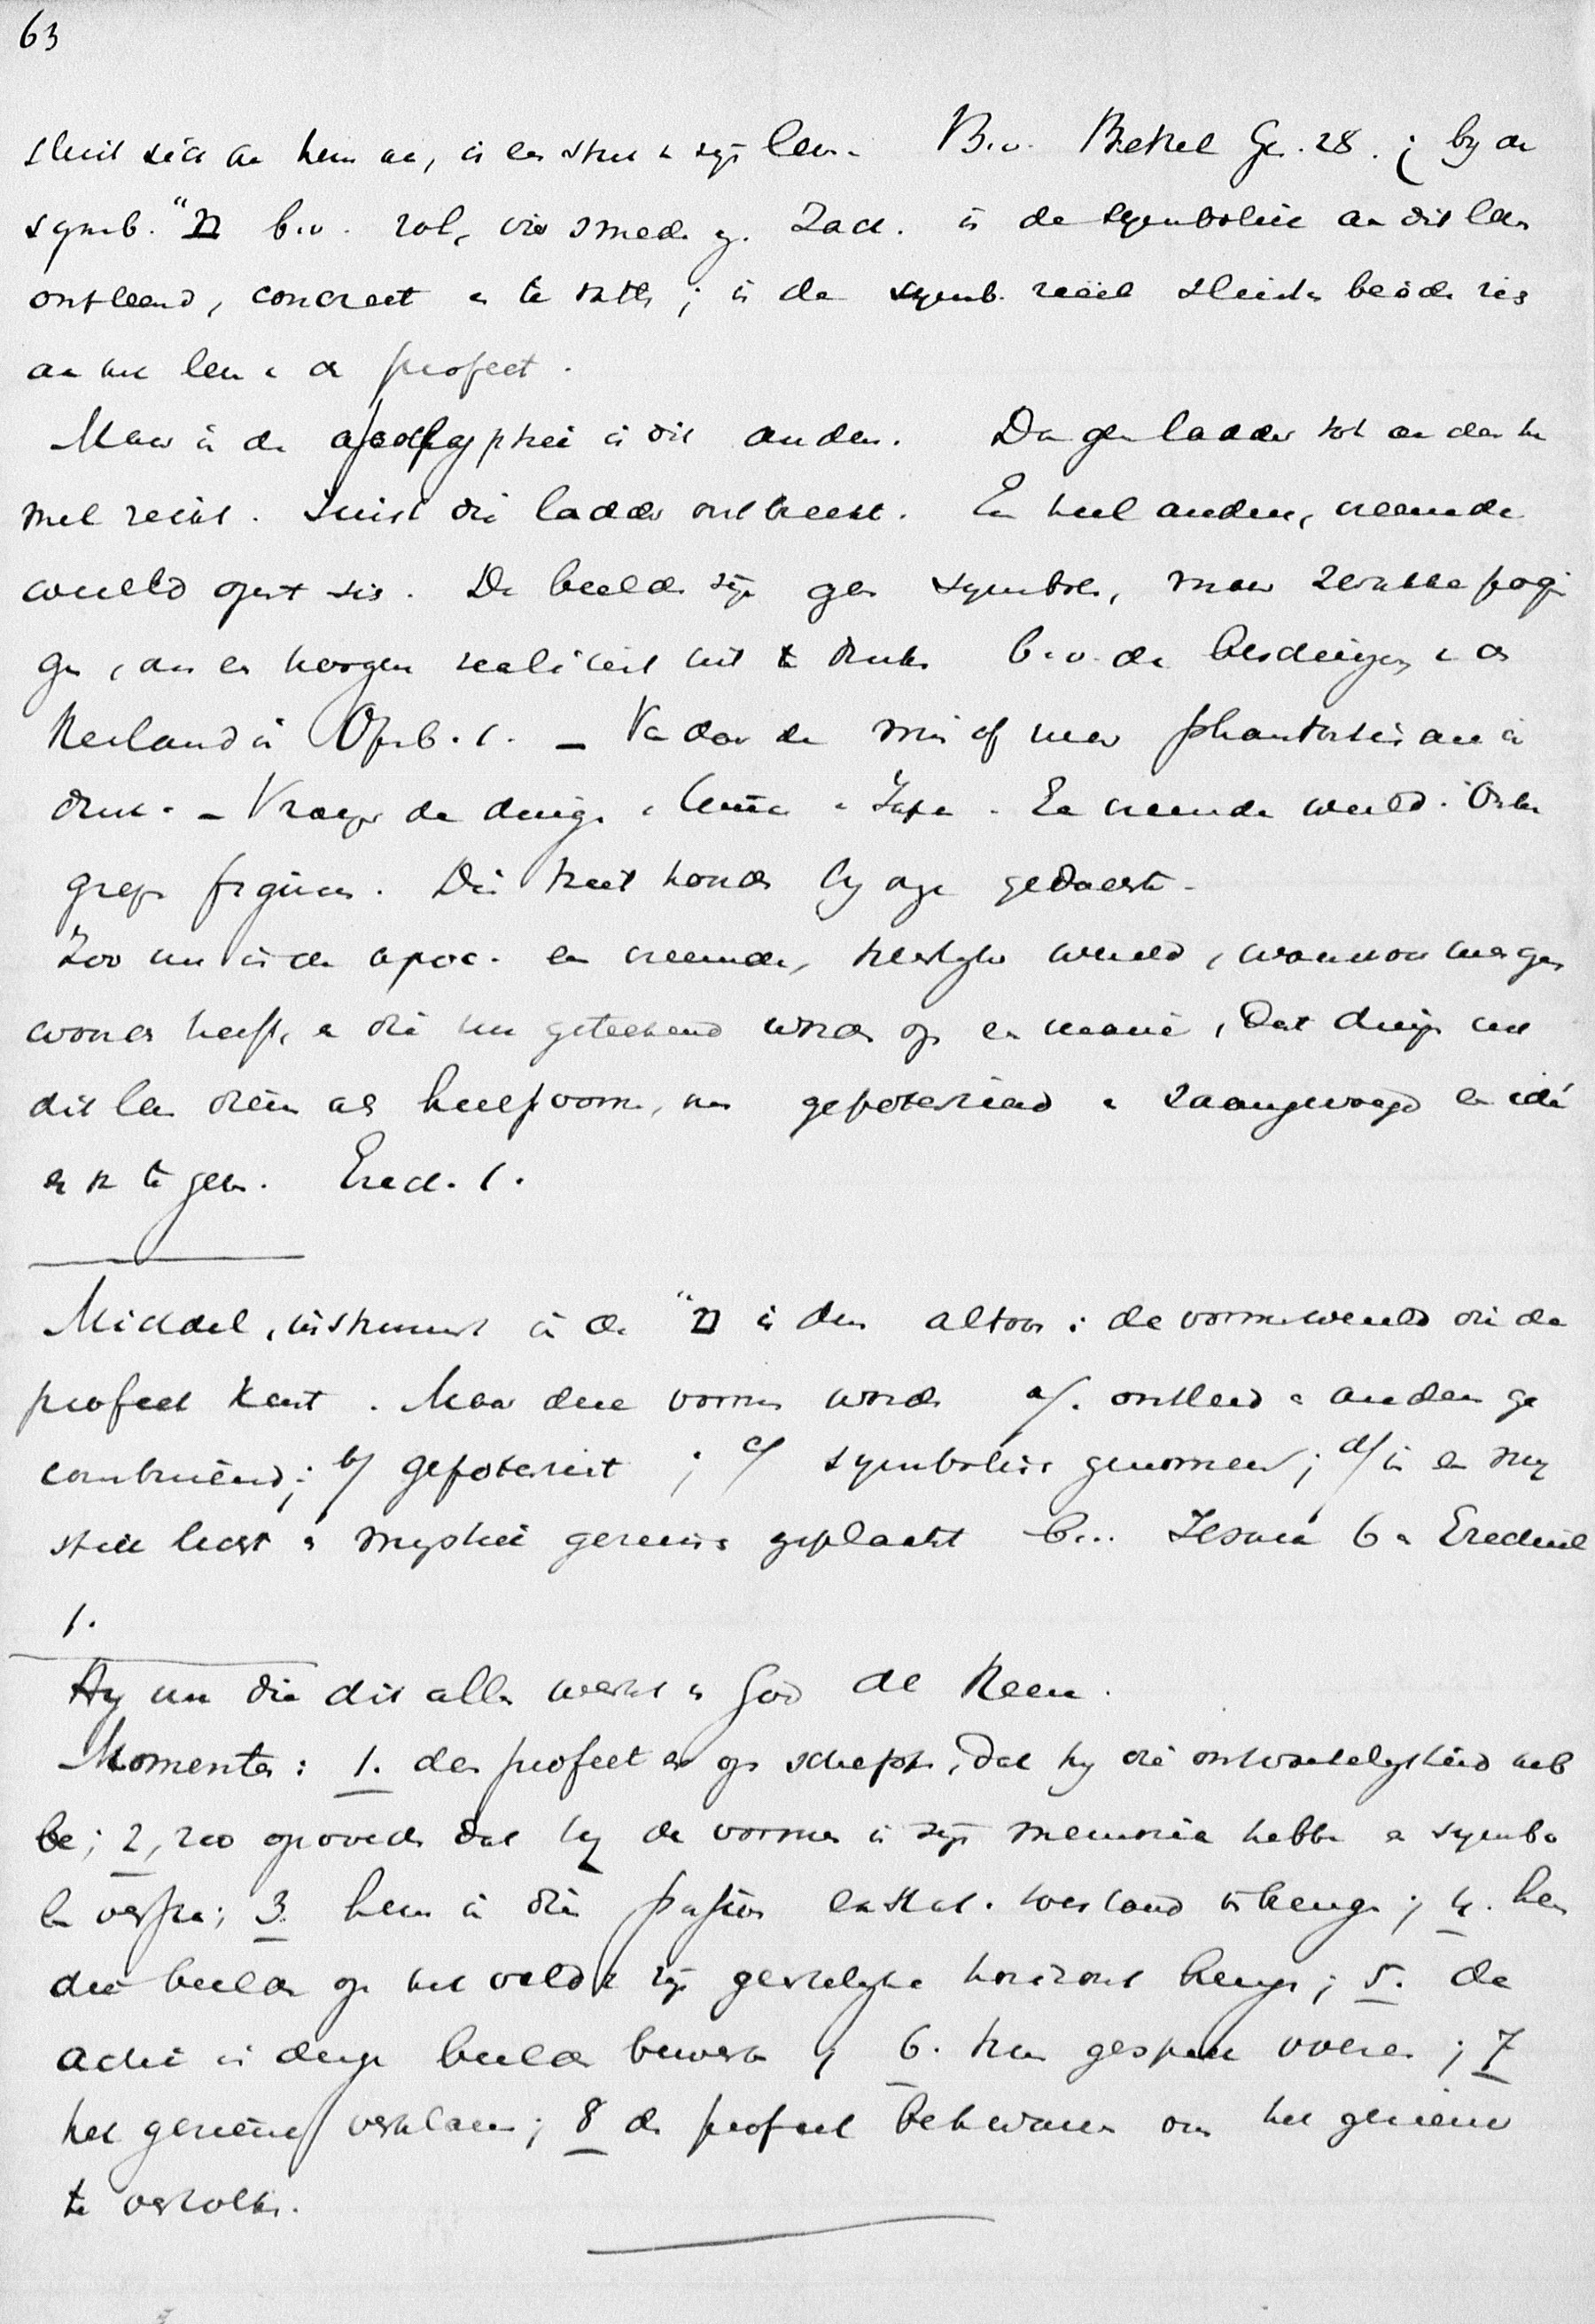 63
sluit zich aan hem aan, is een stuk in zijn leven. B.v. Bethel Gen. 28. ; by de
symb. "מ b.v. rol, vier smeden y. Zach. is de symboliek aan dit leven
ontleend, concreet en te ; is de symb. reëel sluiten beide zich
aan het leven v d profeet.
Maar in de apocalyptiek is dit anders. Dan geen ladder tot aan den he
mel reikt. Juist die ladder ontbreekt. Een heel andere, vreemde
wereld opent zich. De beelden zijn geen symbolen, maar zwakke pogin
gen, om een hoogere realiteit uit te drukken b.v. de beschrijving v d
Heiland in Openb. 1. — Van daar de min of meer phantastische in
druk. — Vroeger de dingen v China en Japan. Een vreemde wereld.
grepen figuren. Die heet honden by gedaente.
Zoo nu is de apoc. een vreemde, heerlyke wereld, waarvan men geen
woorden heeft, en die nu geteekend worden op een manier, dat dingen uit
dit leven dienen als hulpvorm, om gepotenseerd en saamgevoegd een idée
er v te geven. Ezech. 1.
Middel, instrument in de "מ is dus altoos : de vormenwereld die de
profeet kent. Maar deze vormen worden a/. ontleed en anders ge
combineerd; b/ gepotenseert ; c/ symbolisch genomen; d/ in een my
stiek licht en mystiek geheel geplaatst b.v. Jesaia 6 en Ezechiel
1.
Hy nu die dit alles werkt is God de Heere.
Momenten: 1. den profeet er op scheppen, dat hy die ontvankelykheid heb
be; 2, zoo opvoeden dat hy de vormen in zijn memorie hebbe en symbo
len versta; 3. hem in die passieven extat. toestand brengen; 4. hem
die beelden op het veld v zijn geestelyke horizont brengen; 5. de
actie in deze beelden bewerken ; 6. hun gesprek voeren ; 7
het geziene verklaren; 8 de profeet bekwamen om het geziene
te vertolken.